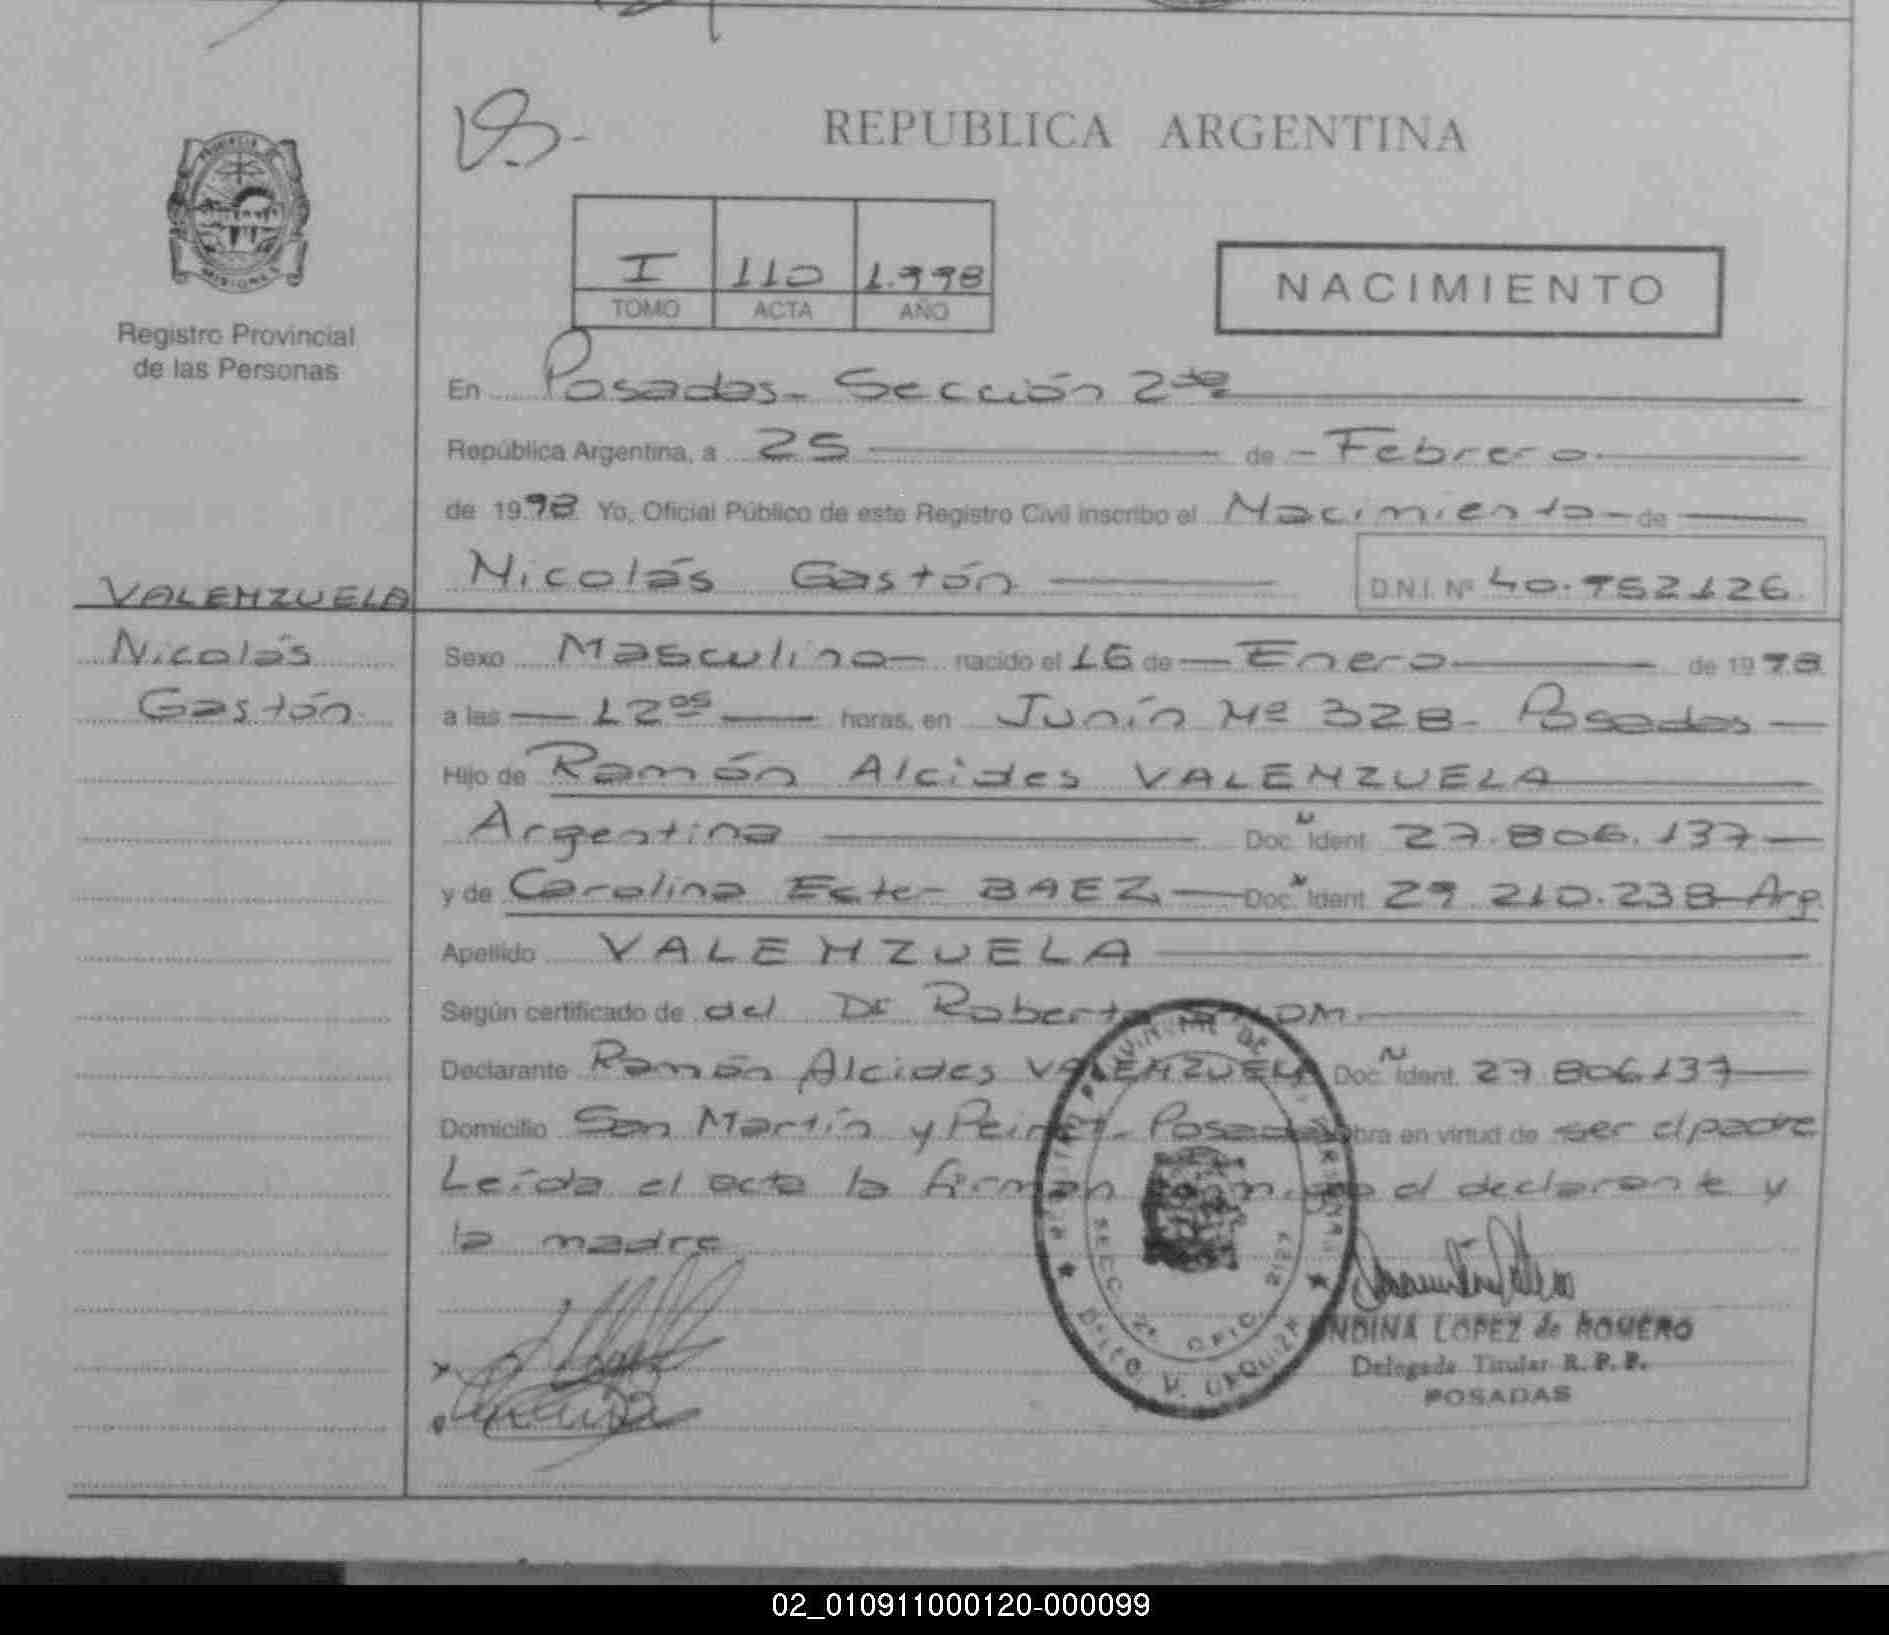 REPUBLICA ARGENTINA
PROVINCIA DE
MISIONES
Registro Provincial
de las Personas
I 110 1.998
TOMO ACTA AÑO
NACIMIENTO
En Posadas - Sección 2da
República Argentina, a 25 de - Febrero
de 1998 Yo, Oficial Público de este Registro Civil inscribo el Nacimiento - de
Nicolás Gastón D.N.I. Nº 40.952126
VALENZUELA
Nicolás
Gastón
Sexo Masculino nacido el 16 de Enero de 1998
a las 12 05 horas, en Junín Nº 328 - Posadas
Hijo de Ramón Alcides VALENZUELA
Argentina Doc. N Ident. 27.806.137
y de Carolina Ester BAEZ Doc. Ident. 29.210.238 Arg.
Apellido VALENZUELA
Según certificado de del Dr Roberto
Declarante Ramón Alcides VALENZUELA Doc. N Ident. 27.806.137
Domicilio San Martín y - Posadas obra en virtud de ser el padre
Leída el acta la firman el declarante y
la madre
SECC. 2ª OFIC.
Dpto. V. URQUIZA
LOPEZ de ROMERO
Delegada Titular R. P. P.
POSADAS
02_010911000120-000099